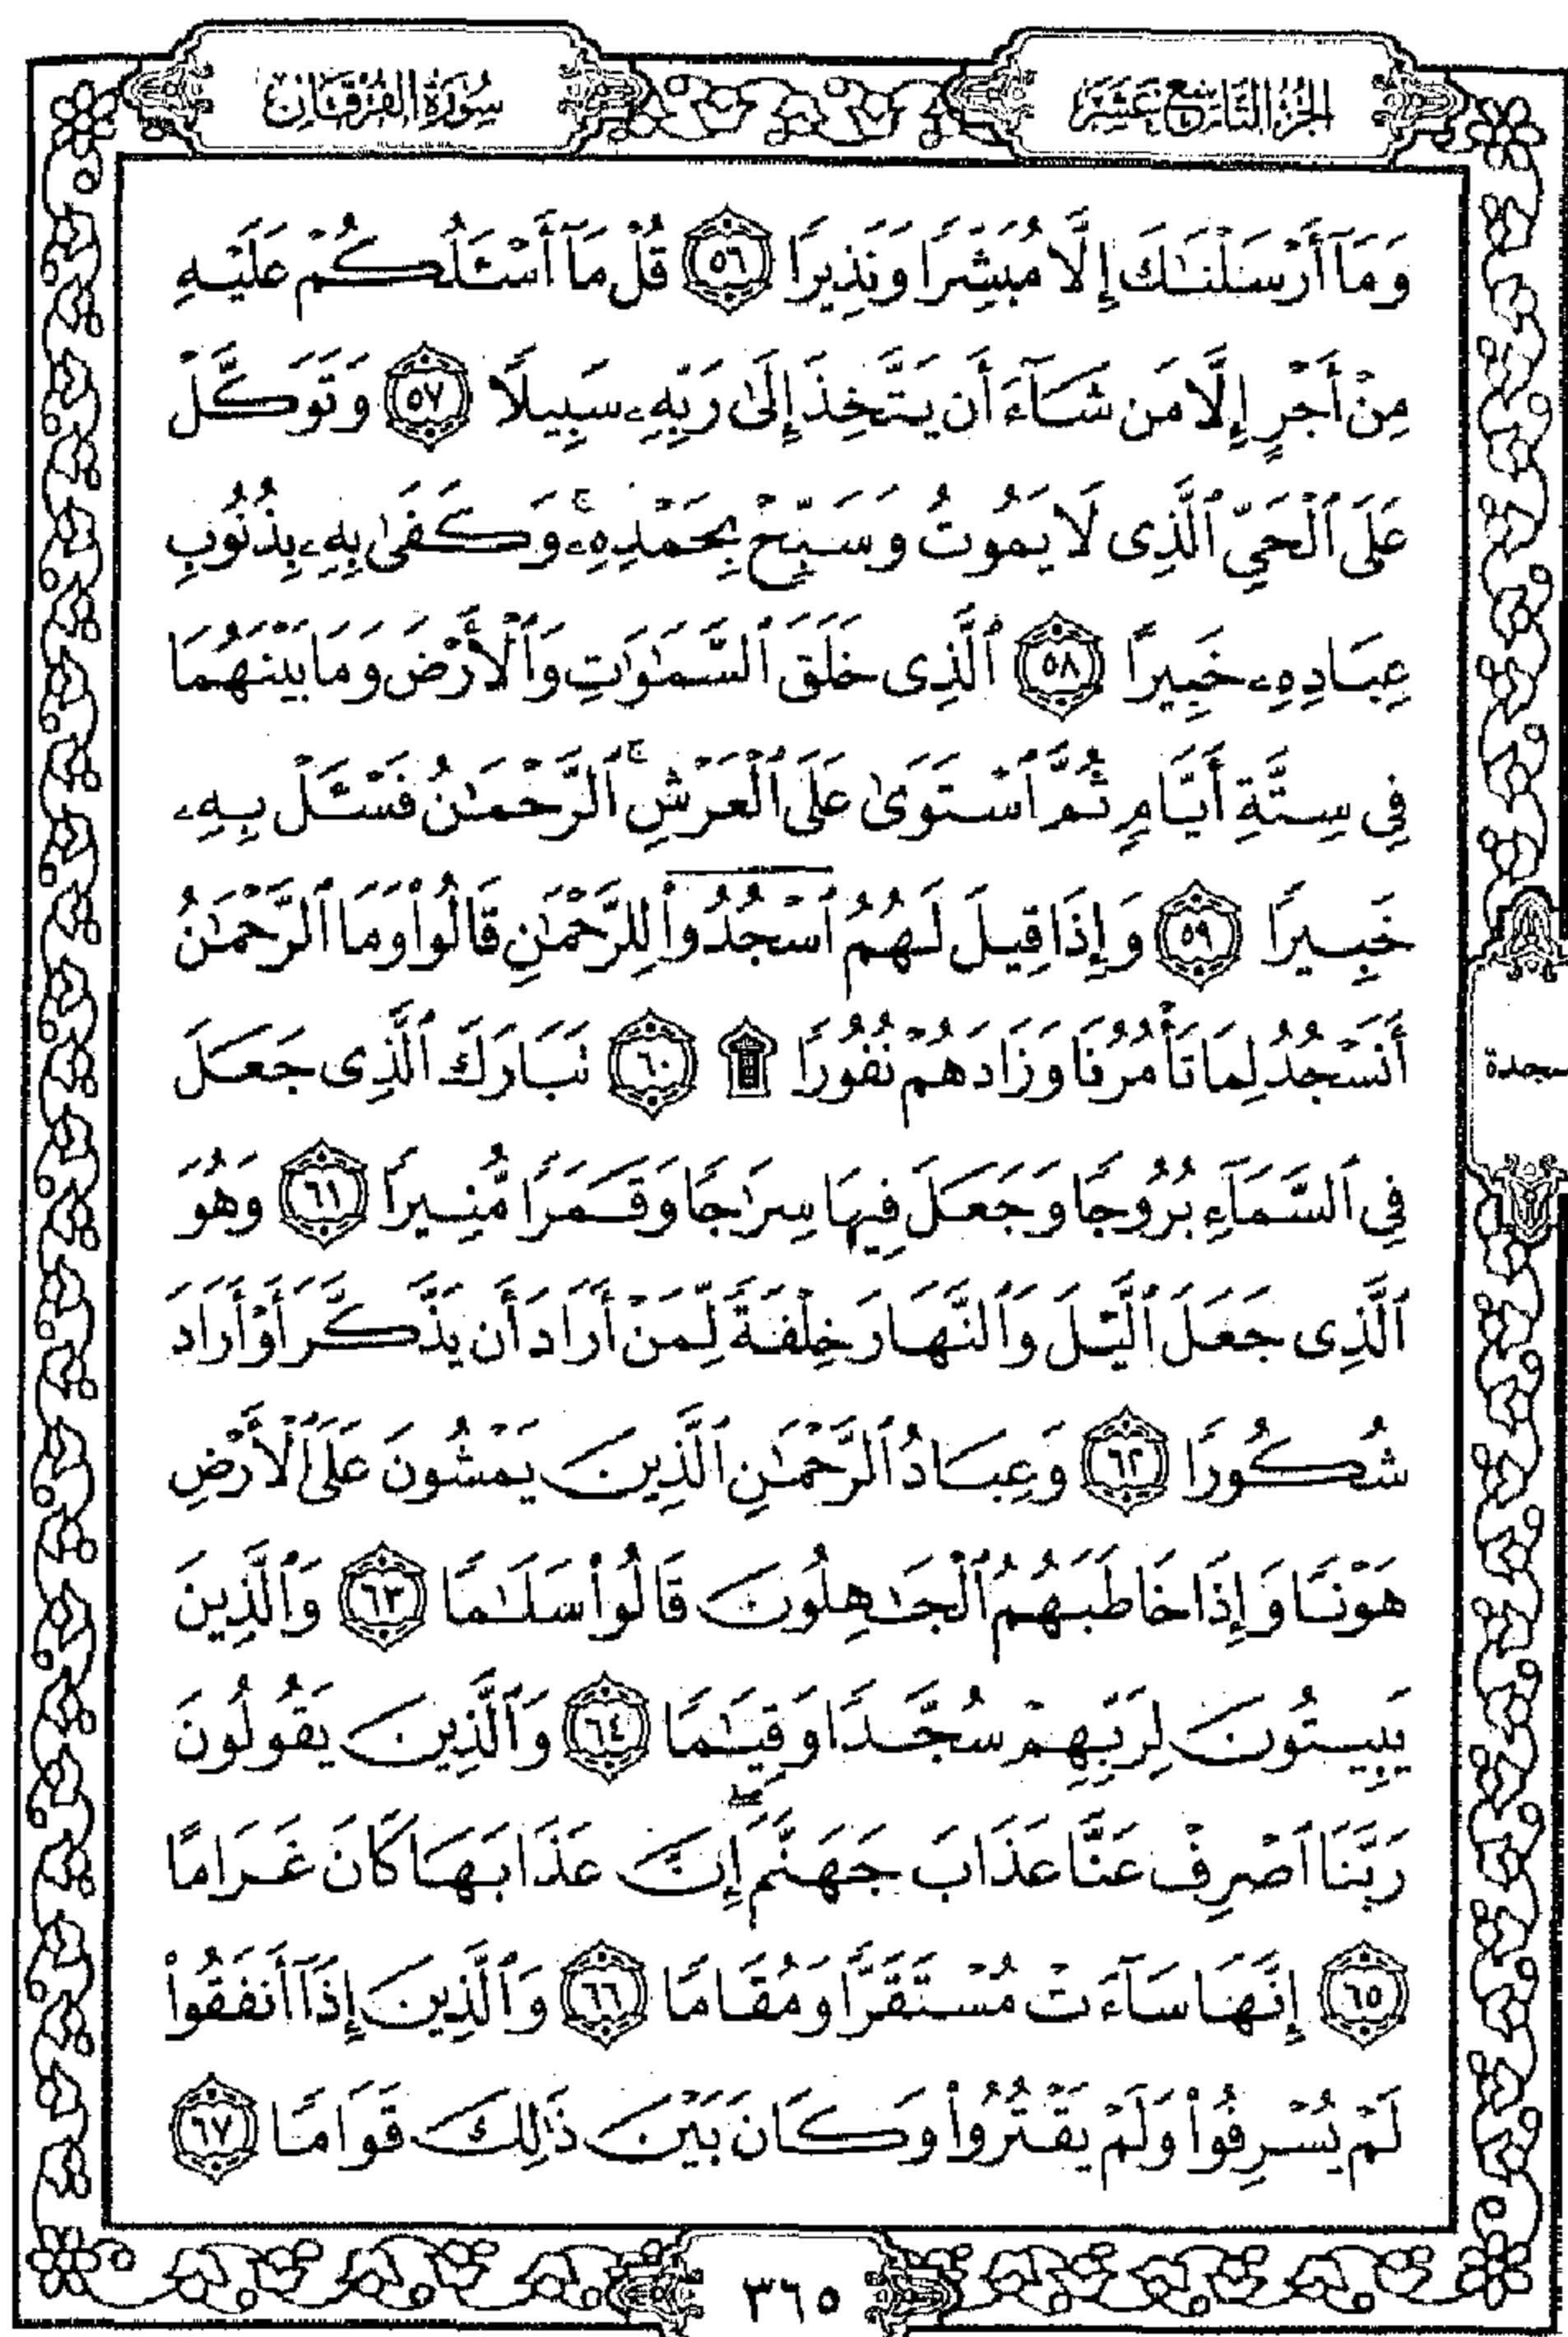 الجزء التاسع عشر
سورة الفرقان
وَمَآ أَرْسَلْنَٰكَ إِلَّا مُبَشِّرًا وَنَذِيرًا ٥٦ قُلْ مَآ أَسْـَٔلُكُمْ عَلَيْهِ
مِنْ أَجْرٍ إِلَّا مَن شَآءَ أَن يَتَّخِذَ إِلَىٰ رَبِّهِۦ سَبِيلًا ٥٧ وَتَوَكَّلْ
عَلَى ٱلْحَيِّ ٱلَّذِى لَا يَمُوتُ وَسَبِّحْ بِحَمْدِهِۦۚ وَكَفَىٰ بِهِۦ بِذُنُوبِ
عِبَادِهِۦ خَبِيرًا ٥٨ ٱلَّذِى خَلَقَ ٱلسَّمَٰوَٰتِ وَٱلْأَرْضَ وَمَا بَيْنَهُمَا
فِى سِتَّةِ أَيَّامٍ ثُمَّ ٱسْتَوَىٰ عَلَى ٱلْعَرْشِۚ ٱلرَّحْمَٰنُ فَسْـَٔلْ بِهِۦ
خَبِيرًا ٥٩ وَإِذَا قِيلَ لَهُمُ ٱسْجُدُوا۟ لِلرَّحْمَٰنِ قَالُوا۟ وَمَا ٱلرَّحْمَٰنُ
أَنَسْجُدُ لِمَا تَأْمُرُنَا وَزَادَهُمْ نُفُورًا ۩ ٦٠ تَبَارَكَ ٱلَّذِى جَعَلَ
سجدة
فِى ٱلسَّمَآءِ بُرُوجًا وَجَعَلَ فِيهَا سِرَٰجًا وَقَمَرًا مُّنِيرًا ٦١ وَهُوَ
ٱلَّذِى جَعَلَ ٱلَّيْلَ وَٱلنَّهَارَ خِلْفَةً لِّمَنْ أَرَادَ أَن يَذَّكَّرَ أَوْ أَرَادَ
شُكُورًا ٦٢ وَعِبَادُ ٱلرَّحْمَٰنِ ٱلَّذِينَ يَمْشُونَ عَلَى ٱلْأَرْضِ
هَوْنًا وَإِذَا خَاطَبَهُمُ ٱلْجَٰهِلُونَ قَالُوا۟ سَلَٰمًا ٦٣ وَٱلَّذِينَ
يَبِيتُونَ لِرَبِّهِمْ سُجَّدًا وَقِيَٰمًا ٦٤ وَٱلَّذِينَ يَقُولُونَ
رَبَّنَا ٱصْرِفْ عَنَّا عَذَابَ جَهَنَّمَۖ إِنَّ عَذَابَهَا كَانَ غَرَامًا
٦٥ إِنَّهَا سَآءَتْ مُسْتَقَرًّا وَمُقَامًا ٦٦ وَٱلَّذِينَ إِذَآ أَنفَقُوا۟
لَمْ يُسْرِفُوا۟ وَلَمْ يَقْتُرُوا۟ وَكَانَ بَيْنَ ذَٰلِكَ قَوَامًا ٦٧
٣٦٥